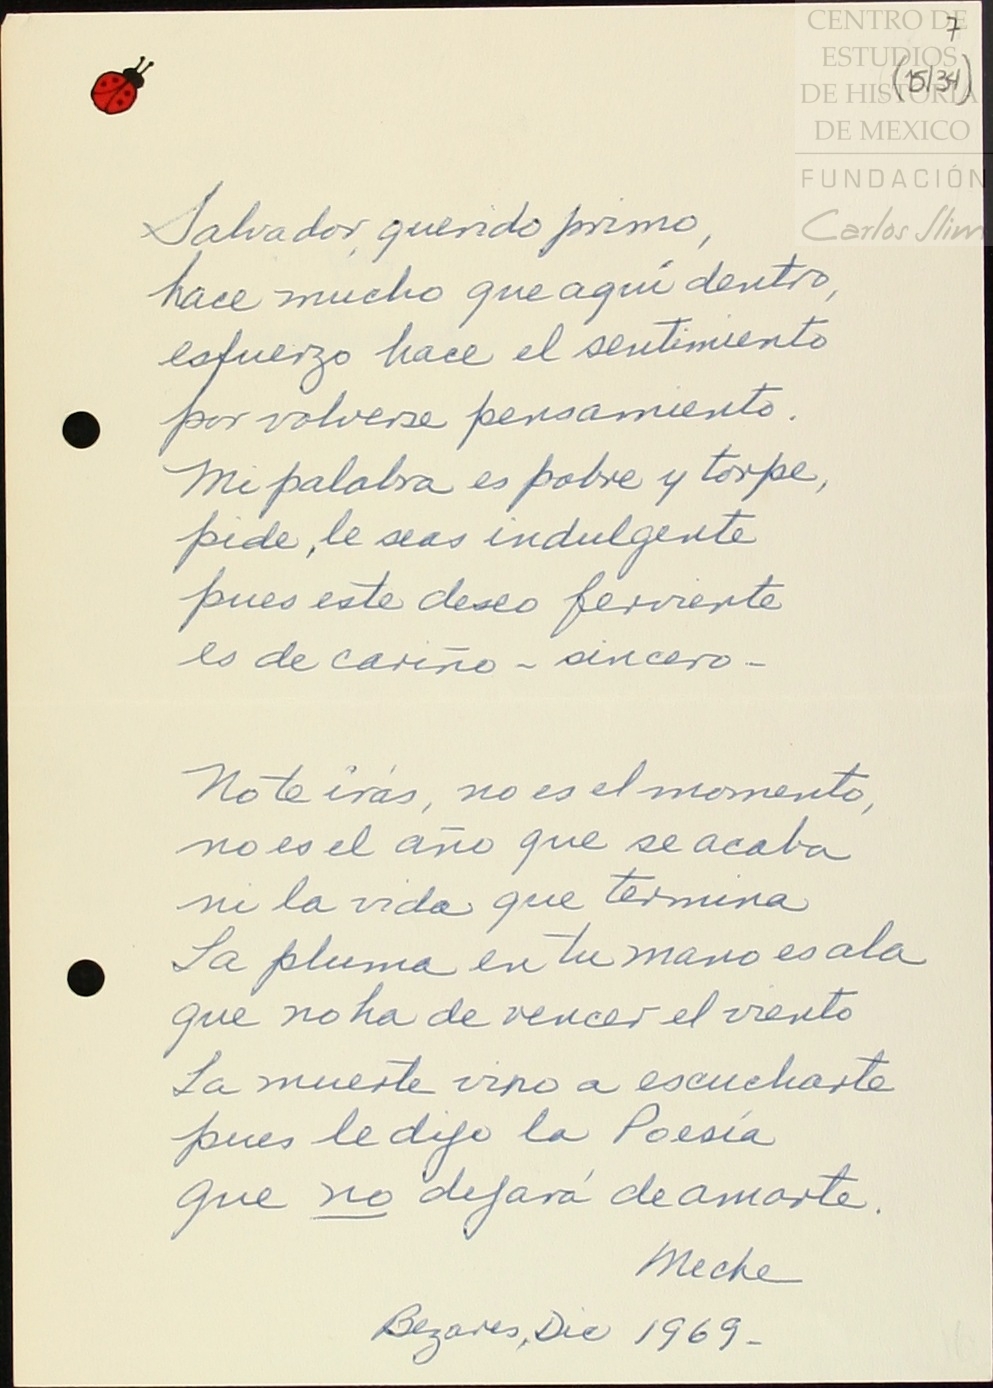 CENTRO DE
ESTUDIOS
DE HISTORIA
DE MEXICO
FUNDACIÓN
Carlos Slim
7
(15/34)
Salvador, querido primo,
hace mucho que aquí dentro,
esfuerzo hace el sentimiento
por volverse pensamiento.
Mi palabra es pobre y torpe,
pide, le seas indulgente
pues este deseo ferviente
es de cariño - sincero -
No te irás, no es el momento,
no es el año que se acaba
ni la vida que termina
La pluma en tu mano es ala
que no ha de vencer el viento
La muerte vino a escucharte
pues le dijo la Poesía
que no dejará de amarte.
Meche
Bezares, Dic 1969-
16